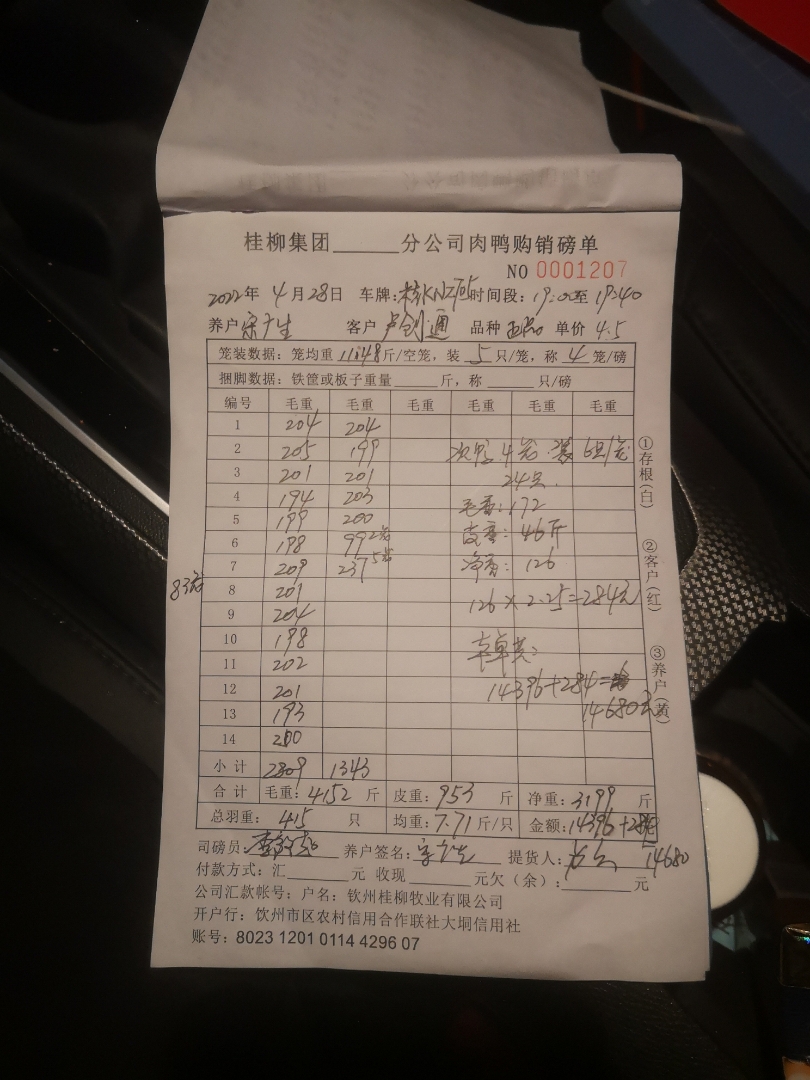 桂柳集团______分公司肉鸭购销磅单
NO 0001207
2022年 4月28日 车牌: 时间段:19:00至19:40
养户 宋广生 客户 卢创通 品种 单价 4.5
笼装数据:笼均重 11.48斤/空笼,装 5 只/笼,称 4 笼/磅
捆脚数据:铁筐或板子重量______斤,称______只/磅
编号 毛重 毛重 毛重 毛重 毛重 毛重
1 204 204
2 205 199 次鸭 4笼·装6只/笼
3 201 201 24只.
4 194 203 毛重:172
5 199 200 皮重:46斤
6 198 99 2笼 净重:126
7 209 237 5笼
83笼
8 201 126×2.25=284元
9 204
10 198
11 202
12 201 14396+284=
13 193 14680元
14 200
小计 2809 1343
合计 毛重:4152 斤 皮重:953 斤 净重:3199 斤
总羽重:415 只 均重:7.71斤/只 金额:14396+284
司磅员: 养户签名: 提货人: 14680
付款方式:汇______元 收现______元欠(余):______元
公司汇款帐号:户名:钦州桂柳牧业有限公司
开户行:钦州市区农村信用合作联社大垌信用社
账号:8023 1201 0114 4296 07
①存根(白)
②客户(红)
③养户(黄)